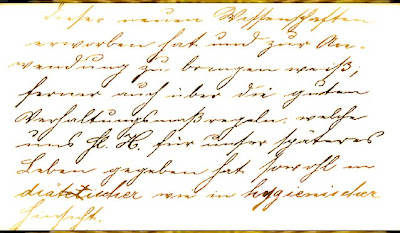 dieser neuen Wissenschaften
erworben hat und zur An-
wendung zu bringen weiß,
ferner auch über die guten
Verhaltungsmaßregeln, welche
uns H. für unser späteres
Leben gegeben hat sowohl in
diätetischer wie in hygienischer
Hinsicht.